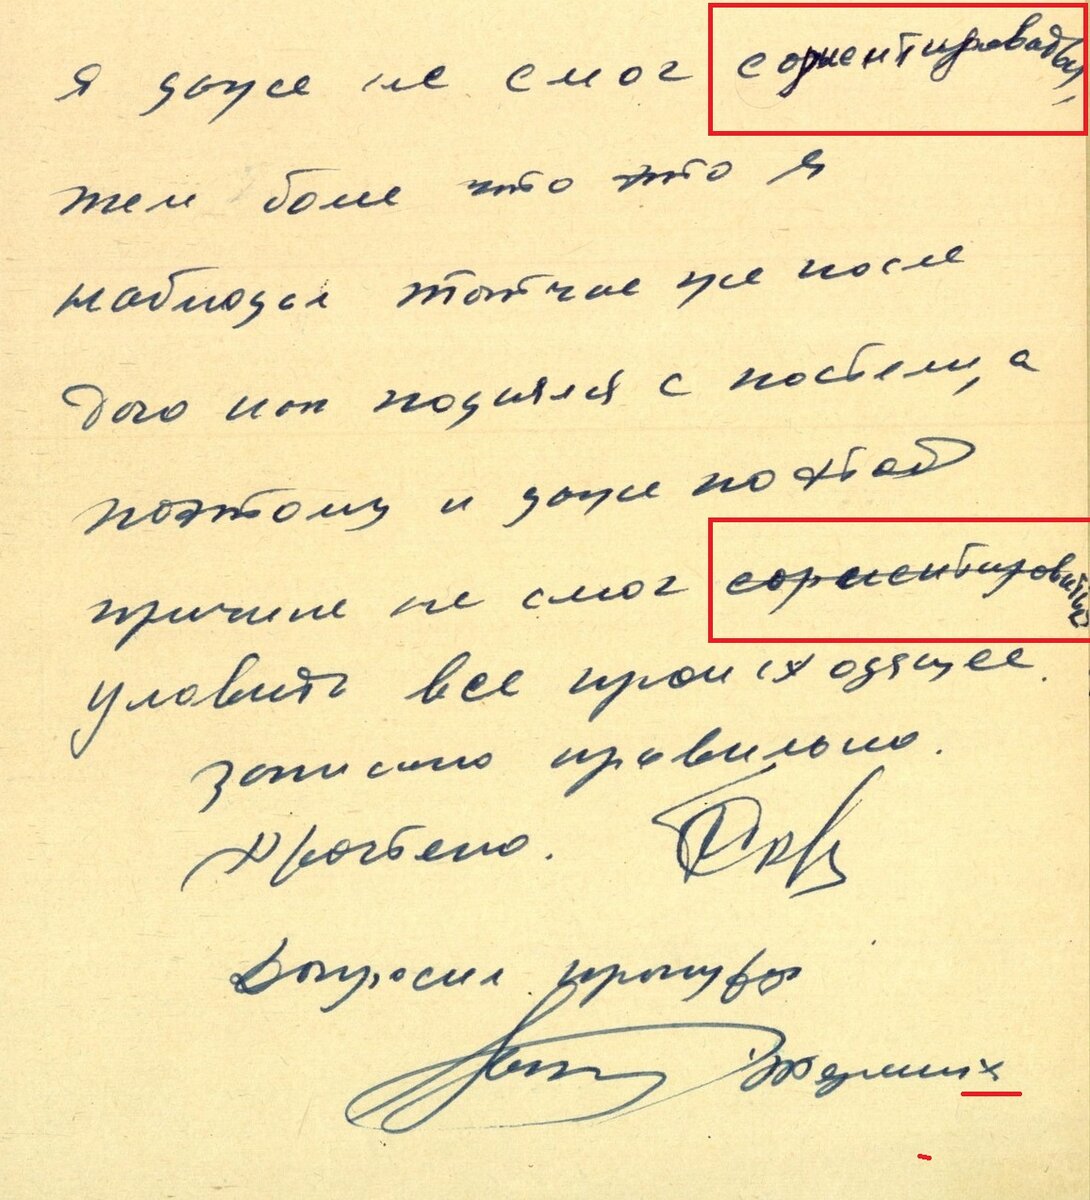 я даже не смог сориентироваться,
тем боле что это я
наблюдал тотчас же после
того как поднялся с постели, а
поэтому и даже по этой
причине не смог сориентироваться
уловить все происходящее.
записано правильно.
Прочтено.
Допросил прокурор